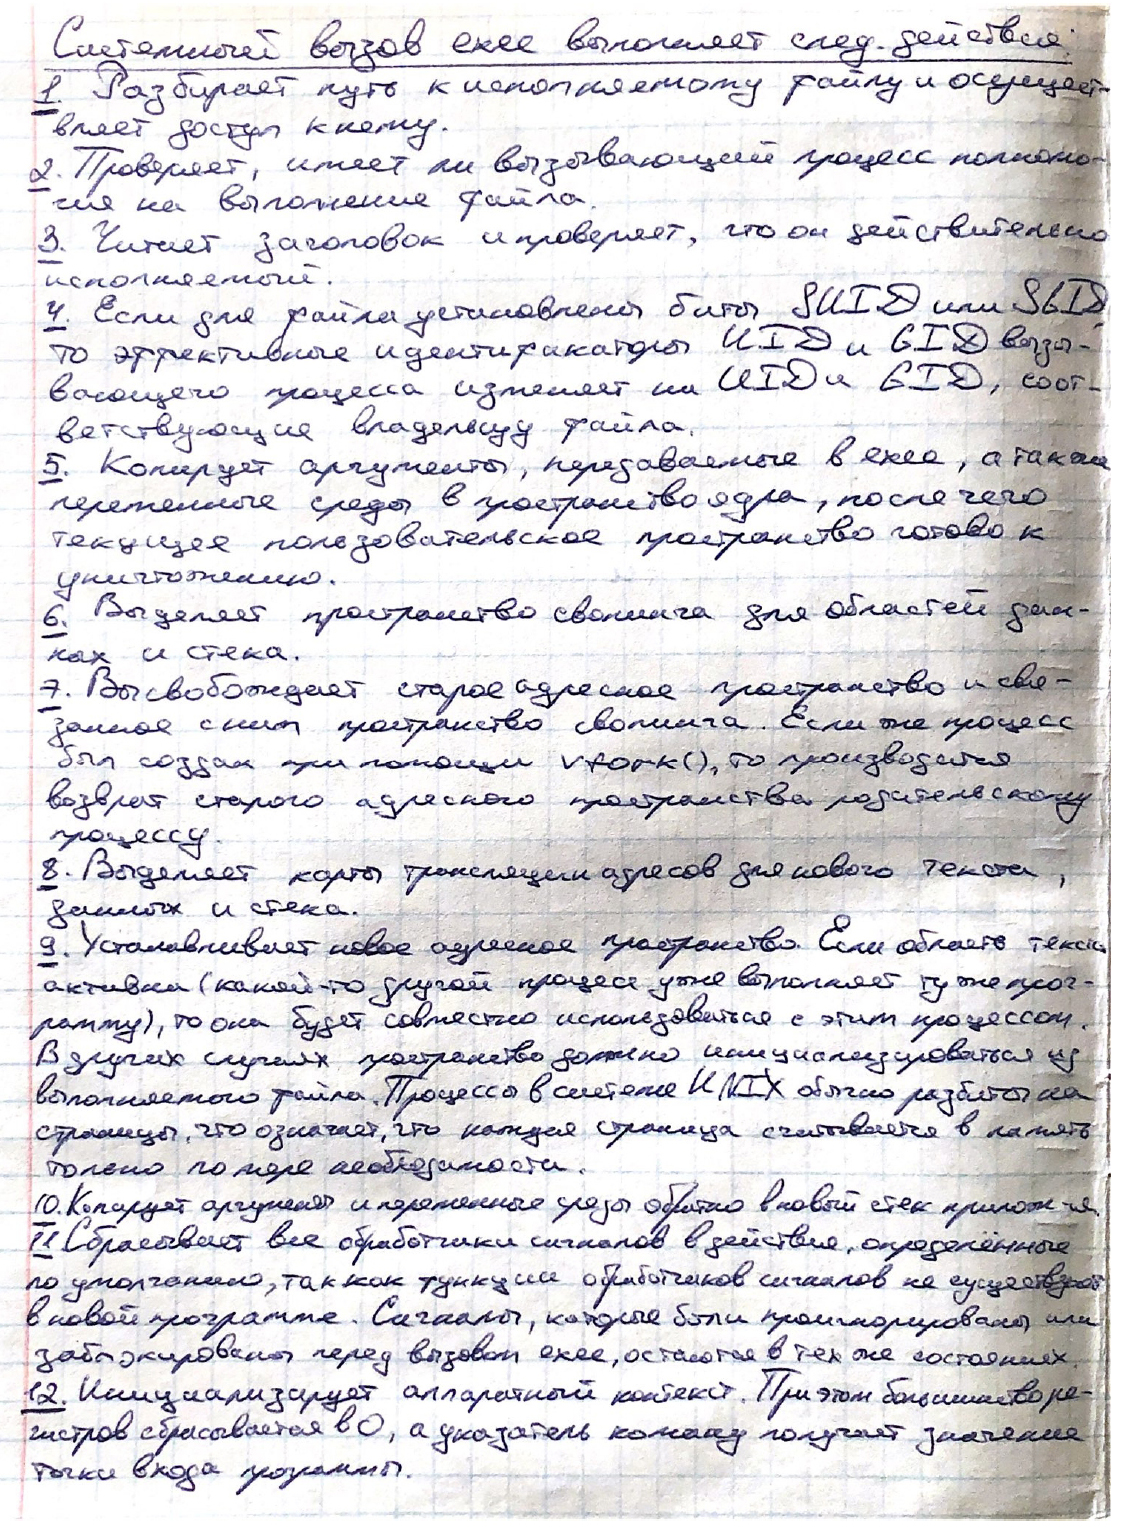 Системный вызов exec выполняет след. действия:
1. Разбирает путь к исполняемому файлу и осущест-
вляет доступ к нему.
2. Проверяет, имеет ли вызывающий процесс полномо-
чия на выполнение файла.
3. Читает заголовок и проверяет, что он действительно
исполняемый.
4. Если для файла установлены биты SUID или SGID,
то эффективные идентификаторы UID и GID вызы-
вающего процесса изменяет на UID и GID, соот-
ветствующие владельцу файла.
5. Копирует аргументы, передаваемые в exec, а также
переменные среды в пространство ядра, после чего
текущее пользовательское пространство готово к
уничтожению.
6. Выделяет пространство свопинга для областей дан-
ных и стека.
7. Высвобождает старое адресное пространство и свя-
занное с ним пространство свопинга. Если же процесс
был создан при помощи vfork(), то производится
возврат старого адресного пространства родительскому
процессу.
8. Выделяет карты трансляции адресов для нового текста,
данных и стека.
9. Устанавливает новое адресное пространство. Если область текста
активна (какой-то другой процесс уже выполняет ту же прог-
рамму), то она будет совместно использоваться с этим процессом.
В других случаях пространство должно инициализироваться из
выполняемого файла. Процессы в системе UNIX обычно разбиты на
страницы, что означает, что каждая страница считывается в память
только по мере необходимости.
10. Копирует аргументы и переменные среды обратно в новый стек прилож-я.
11 Сбрасывает все обработчики сигналов в действия, определённые
по умолчанию, так как функции обработчиков сигналов не существуют
в новой программе. Сигналы, которые были проигнорированы или
заблокированы перед вызовом exec, остаются в тех же состояниях.
12. Инициализирует аппаратный контекст. При этом большинство ре-
гистров сбрасывается в 0, а указатель команд получает значение
точки входа программы.